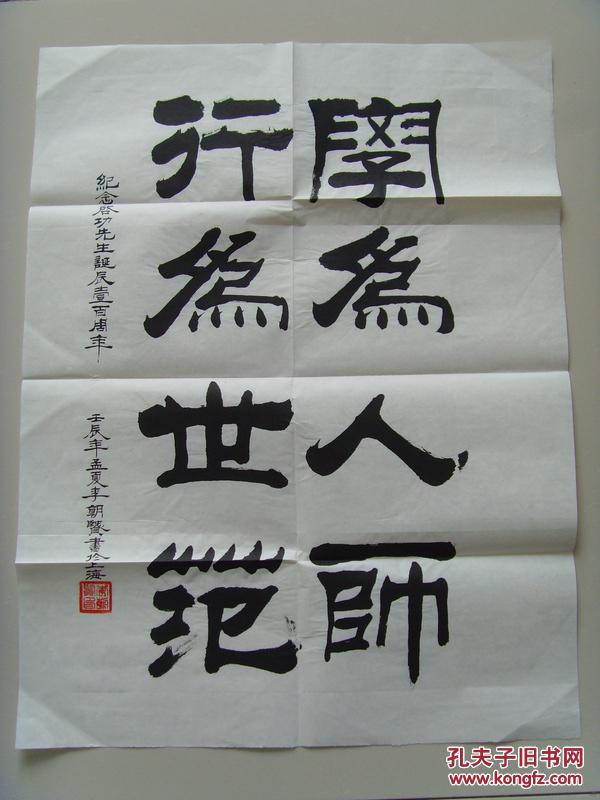 學爲人師
行爲世范
紀念啓功先生誕辰壹百周年
壬辰年孟夏李朝賢書於上海
孔夫子旧书网
www.kongfz.com